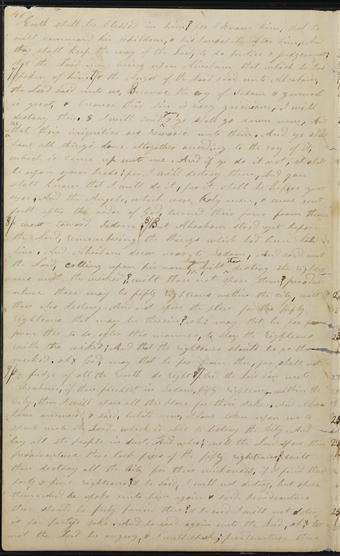 Earth shall be blessed in him? for I know him, that he
will command his children, & his household after him, And
they shall keep the way of the Lord, to do justice & judgment
that the Lord may bring upon Abraham that which he has
spoken of him. & the Angel of the Lord said unto Abraham,
the Lord said unto us, Because the cry of Sodom & Gomorrah
is great, & because their sin is very grievous, I will
destroy them. & I will send you & ye shall go down now, And
that their iniquities are rewarded unto them. And ye shall
have all things done altogether according to the cry of it,
which is come up unto me. And if ye do it not, it shall
be upon your heads; for I will destroy them, And you
shall know that I will do it, for it shall be before your
eyes. And the Angels, which were holy men, & were sent
forth after the order of God, turned their faces from thence
& went toward Sodom. But Abraham stood yet before
the Lord, remembering the things which had been told
him. And Abraham drew near to, And said unto
the Lord, calling upon his name, wilt destroy the righteous
with the wicked? wilt thou not spare them? peradventure
there may be fifty righteous within the city, wilt
thou also destroy And not spare the place for the fifty
righteous that may be therein? oh! may that be far from
thee to do after this manner, to slay the righteous
with the wicked; And that the righteous should be as the
wicked. oh God, may that be far from thee, for shall not
the judge of all the Earth do right? And the Lord said unto
Abraham, if thou findest in Sodom, fifty righteous within the
city, then I will spare all the place for their sakes. And Abraham
answered & said, behold now, I have taken upon me to
speak unto the Lord, which is able to destroy the city, And
lay all the people in dust, will the Lord spare them
peradventure there lack five of the fifty righteous; wilt
thou destroy all the city for their wickedness, if I find there
forty & five righteous? & he said, I will not destroy, but spare
them. And he spake unto him again & said, peradventure
there should be forty found there? & he said I will not destroy
it for forty's sake. And he said again unto the Lord, oh! let
not the Lord be angry, & I will speak; peradventure there